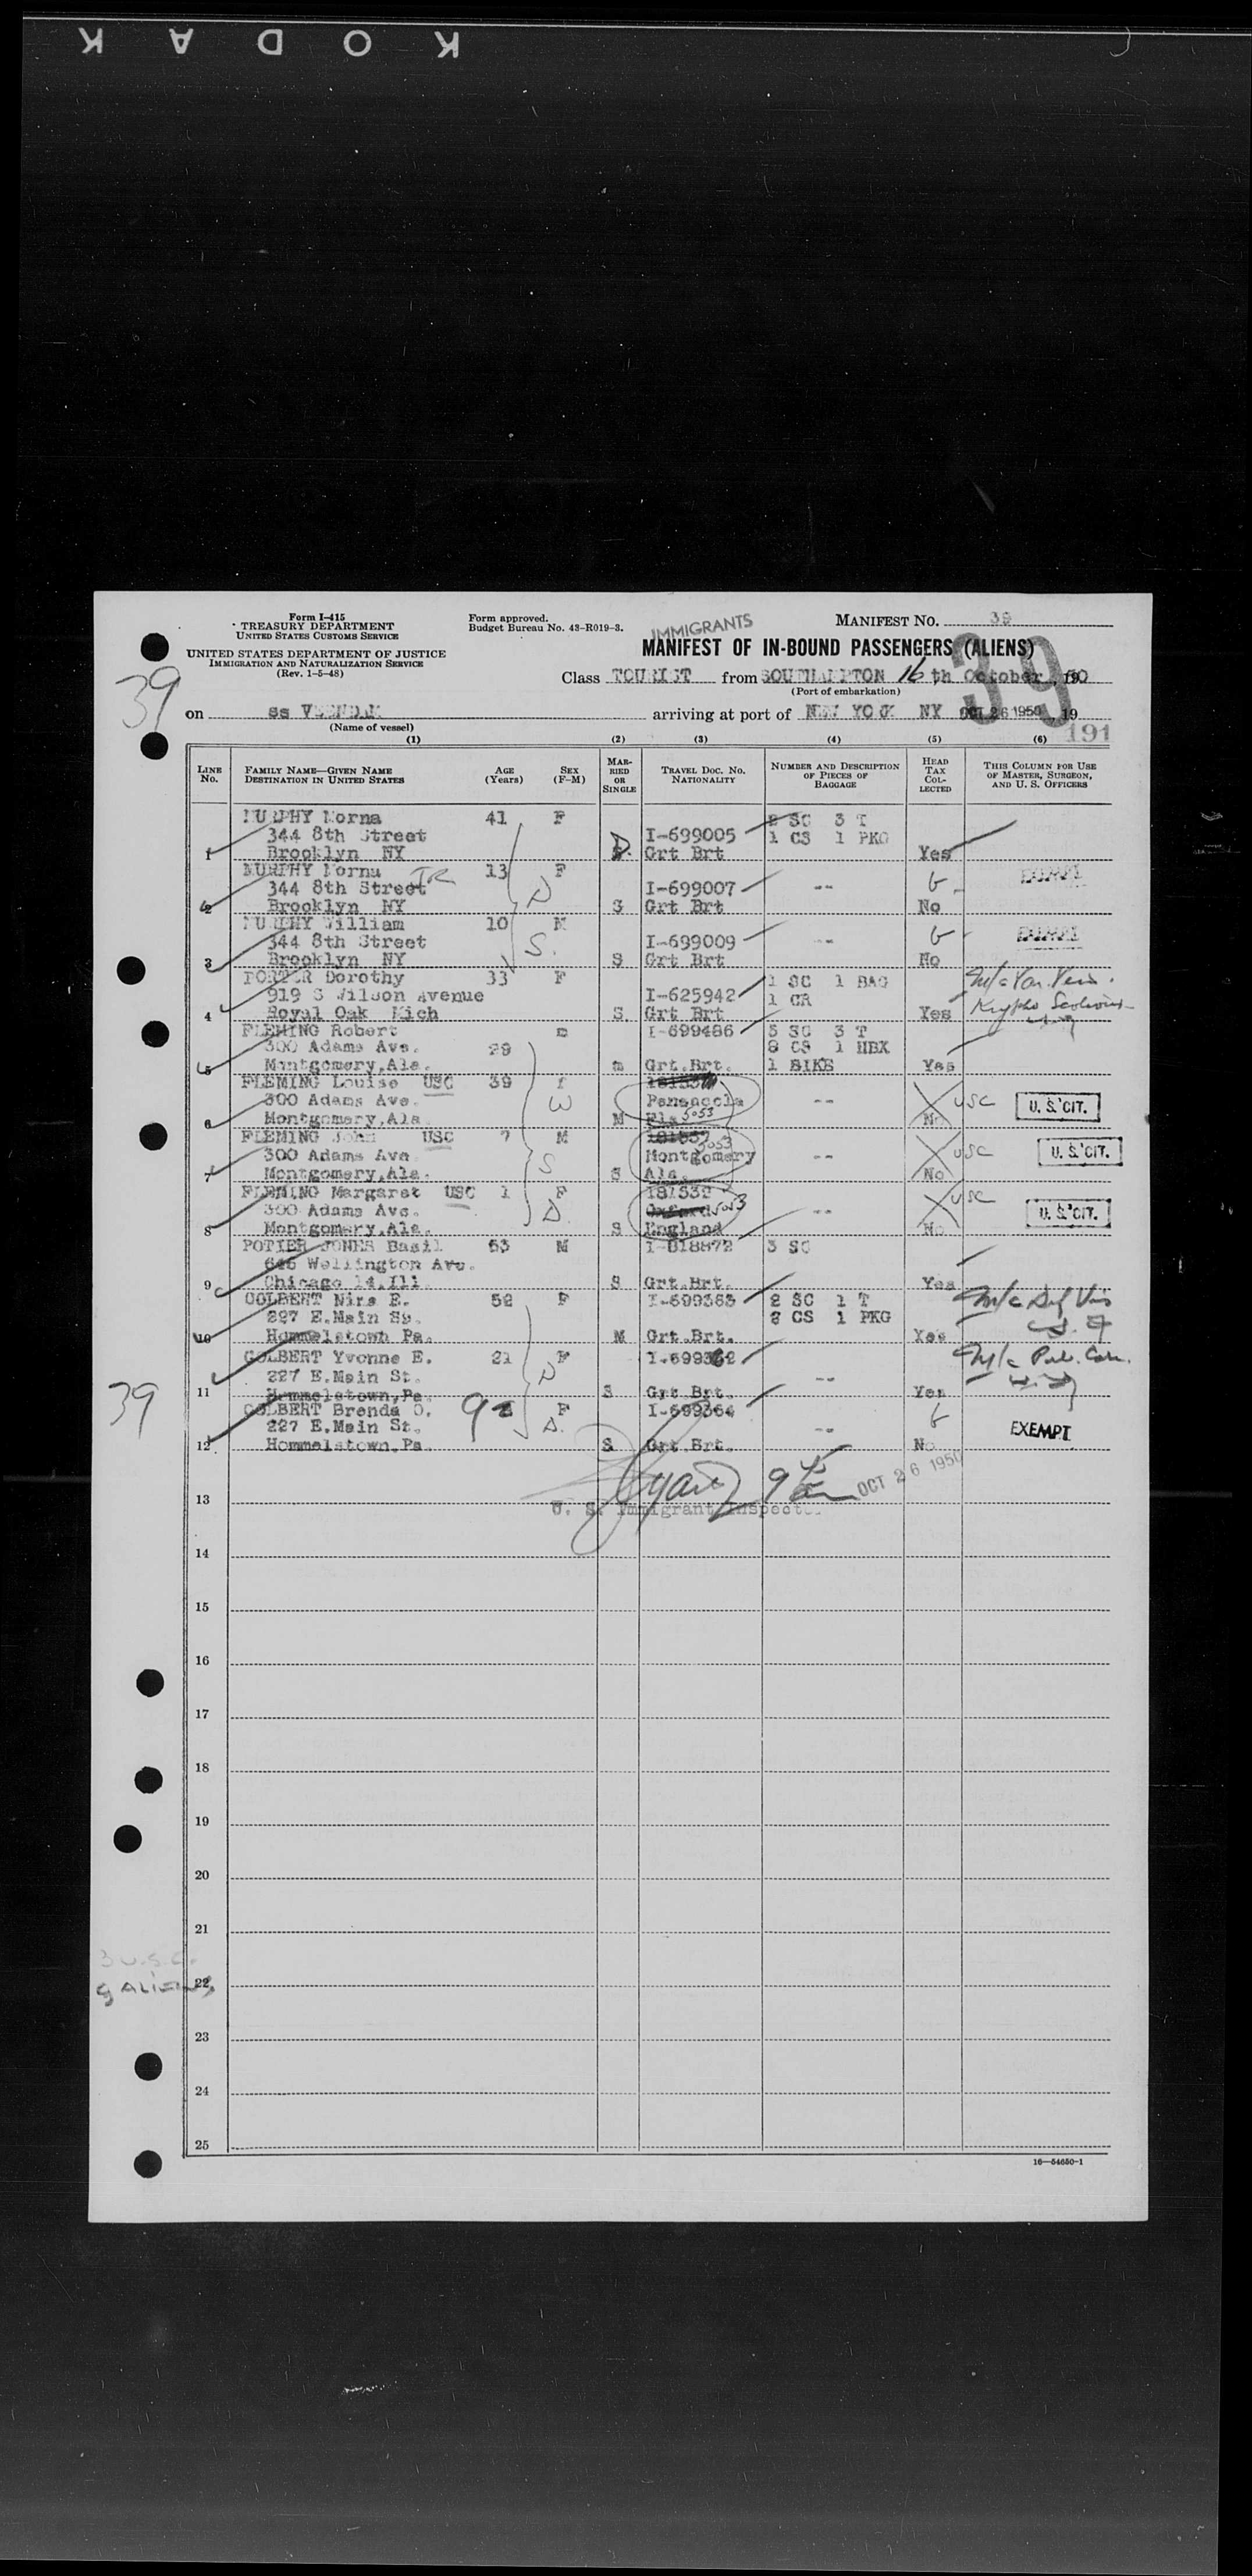 KODAK
Form I-415
TREASURY DEPARTMENT
UNITED STATES CUSTOMS SERVICE
UNITED STATES DEPARTMENT OF JUSTICE
IMMIGRATION AND NATURALIZATION SERVICE
(Rev. 1-5-48)
Form approved.
Budget Bureau No. 43-R019-3.
IMMIGRANTS
MANIFEST NO. 39
MANIFEST OF IN-BOUND PASSENGERS (ALIENS)
39
39
Class TOURIST from SOUTHAMPTON 16 th October, 1950
(Port of embarkation)
on ss VEENDAM arriving at port of NEW YORK NY OCT 26 1950 19
(Name of vessel)
191
(1) (2) (3) (4) (5) (6)
LINE No. FAMILY NAME—GIVEN NAME DESTINATION IN UNITED STATES AGE (Years) SEX (F-M) MARRIED OR SINGLE TRAVEL DOC. No. NATIONALITY NUMBER AND DESCRIPTION OF PIECES OF BAGGAGE HEAD TAX COLLECTED THIS COLUMN FOR USE OF MASTER, SURGEON, AND U. S. OFFICERS
MURPHY Norna 41 F 2 SC 3 T
344 8th Street I-699005 1 CS 1 PKG
1 Brooklyn NY D. Grt Brt Yes
MURPHY Norna JR 13 F
344 8th Street D I-699007 -- EXEMPT
2 Brooklyn NY S Grt Brt No
MURPHY William 10 M
344 8th Street S. I-699009 -- EXEMPT
3 Brooklyn NY S Grt Brt No
PORTER Dorothy 33 F 1 SC 1 BAG
919 S Wilson Avenue I-625942 1 CR
4 Royal Oak Mich S. Grt Brt Yes
FLEMING Robert m I-699486 5 SC 3 T
300 Adams Ave. 29 8 CS 1 HBX
5 Montgomery,Ala. m Grt.Brt. 1 BIKE Yes
FLEMING Louise USC 39 f
300 Adams Ave. W Pensacola -- USC U. S. CIT.
6 Montgomery,Ala M Fla 5053 No
FLEMING John USC 7 M 5053
300 Adams Ave S Montgomery -- USC U. S. CIT.
7 Montgomery,Ala. S Ala. No
FLEMING Margaret USC 1 F 181532
300 Adams Ave. D. Oxford 5053 -- USC U. S. CIT.
8 Montgomery,Ala. S England No
POTIER JONES Basil 53 M I-818872 3 SC
646 Wellington Ave.
9 Chicago 14.Ill. S Grt.Brt. Yes
COLBERT Nira E. 52 F I-699363 2 SC 1 T
227 E.Main Sy. 8 CS 1 PKG
10 Hommelstown Pa. M Grt.Brt. Yes
COLBERT Yvonne E. 21 F I-699362
227 E.Main St. D --
11 Hommelstown,Pa S Grt.Brt. Yes
COLBERT Brenda O. 9 F I-699364
227 E.Main St. D. -- EXEMPT
12 Hommelstown,Pa. S Grt.Brt. No
OCT 26 1950
13 U. S. Immigrant Inspector
39
14
15
16
17
18
19
20
21
3 U.S.C.
22
9 ALIENS
23
24
25
16—54650-1